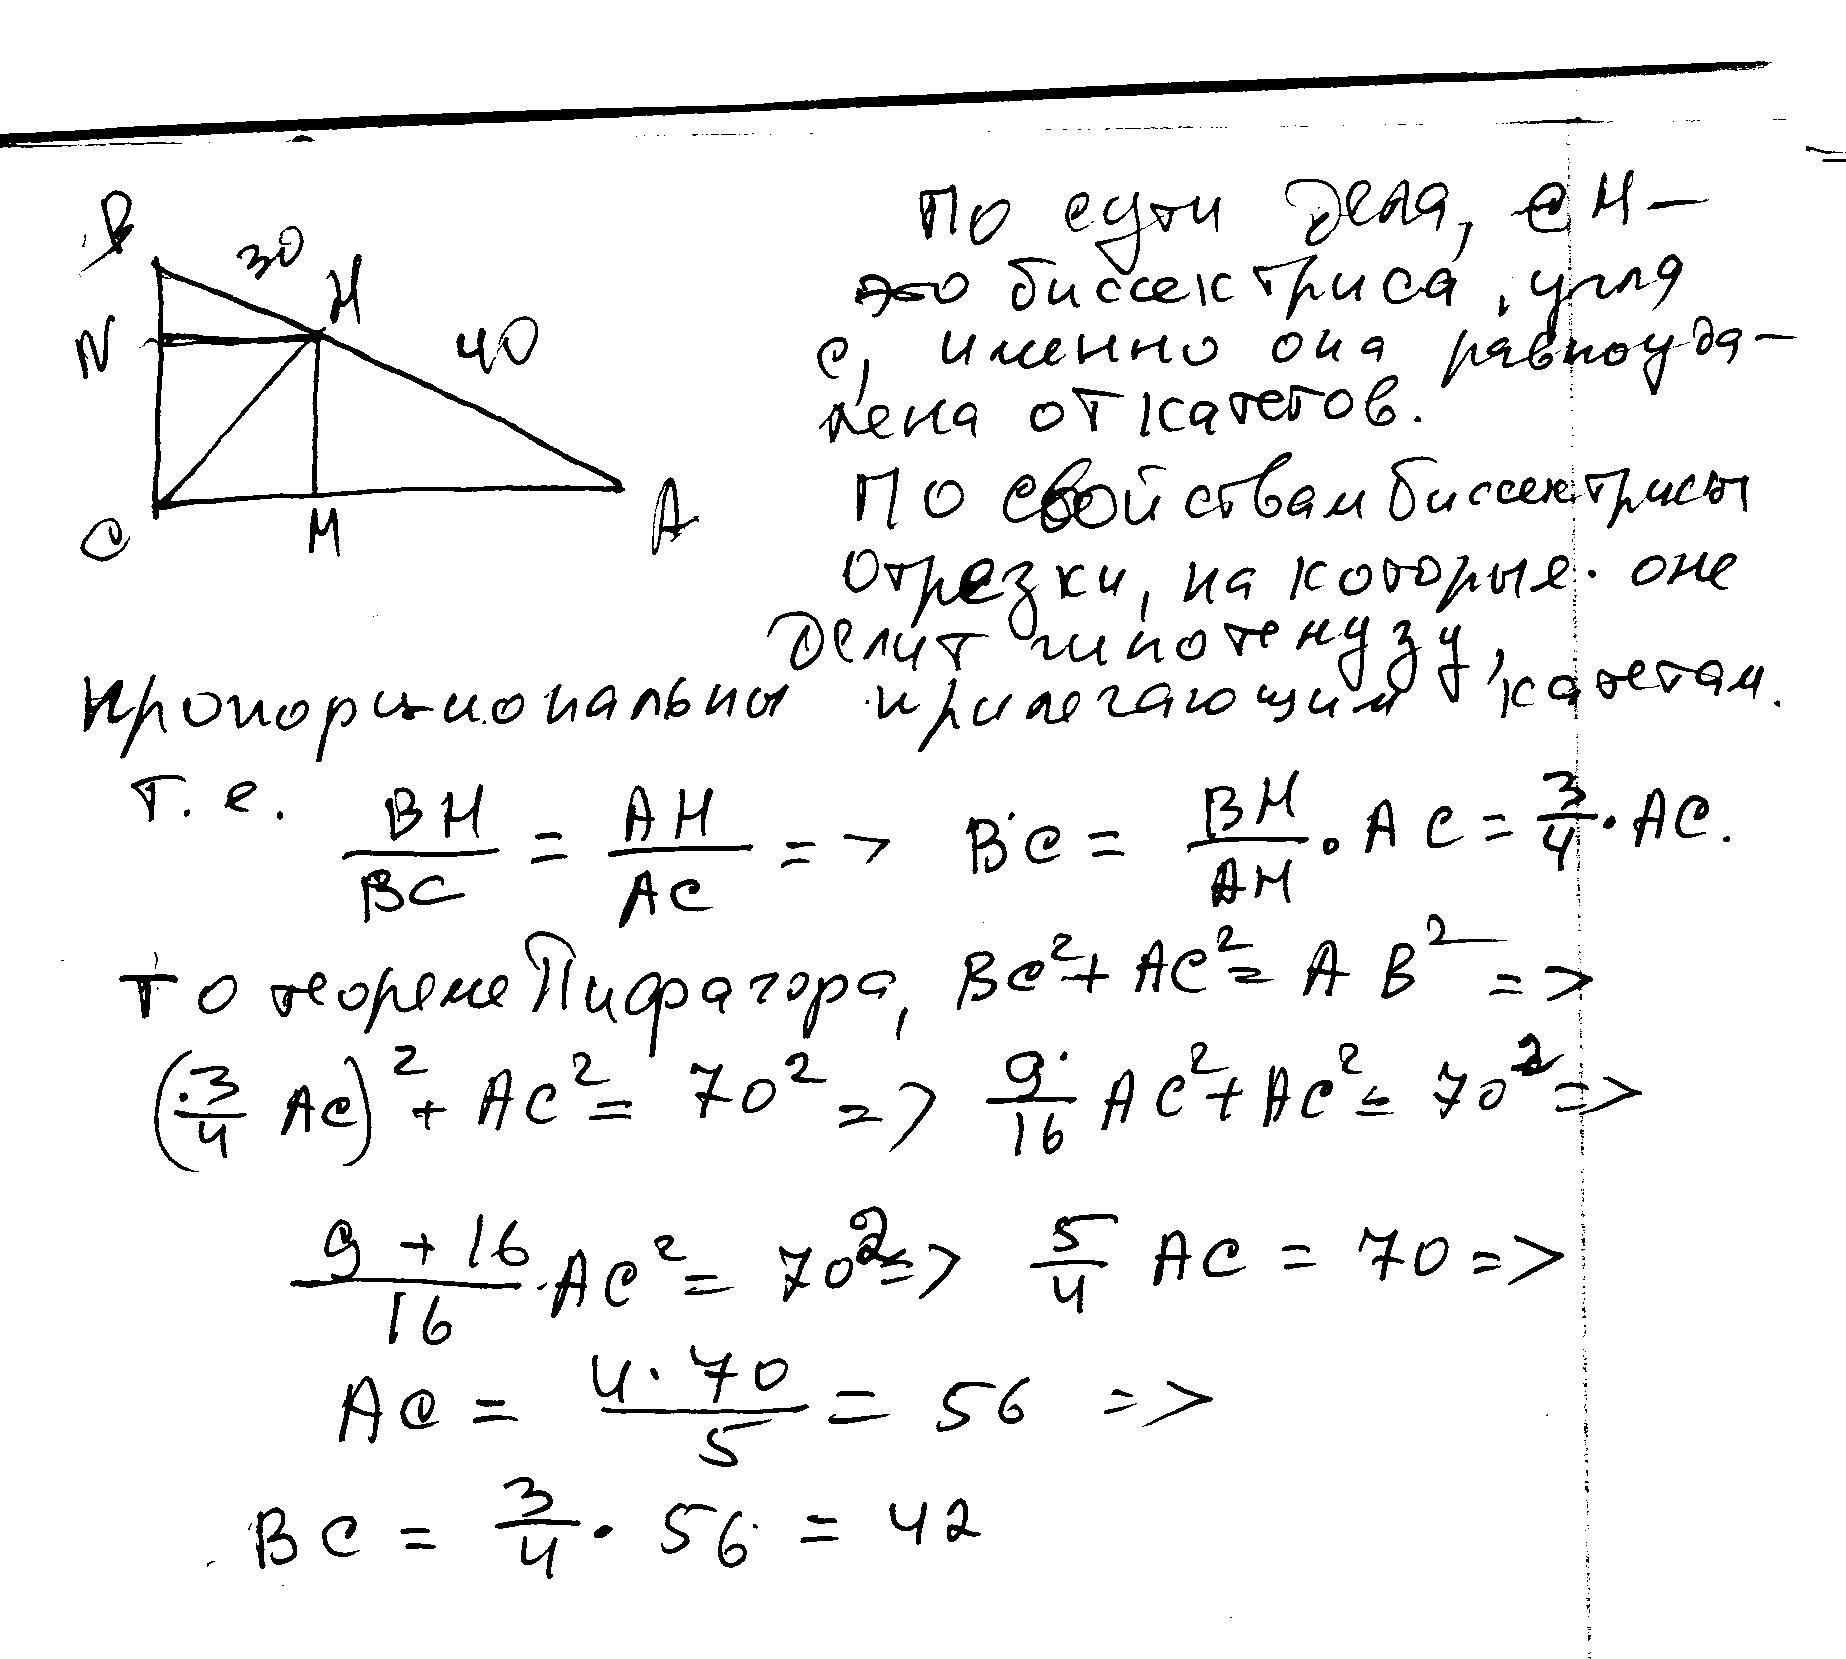 B
30
H
N
40
C
M
A
По сути дела, CH –
это биссектриса угла
C, именно она равноуда–
лена от катетов.
По свойствам биссектрисы
отрезки, на которые она
делит гипотенузу,
пропорциональны прилегающим катетам.
т.е. BH/BC = AH/AC => BC = BH/AH · AC = 3/4 · AC.
То теореме Пифагора, BC² + AC² = AB² =>
(3/4 AC)² + AC² = 70² => 9/16 AC² + AC² = 70² =>
9+16/16 · AC² = 70² => 5/4 AC = 70 =>
AC = 4·70/5 = 56 =>
BC = 3/4 · 56 = 42